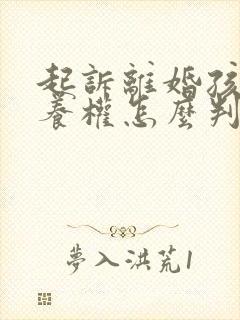 起訴離婚孩
養權怎麼判
夢入洪荒1